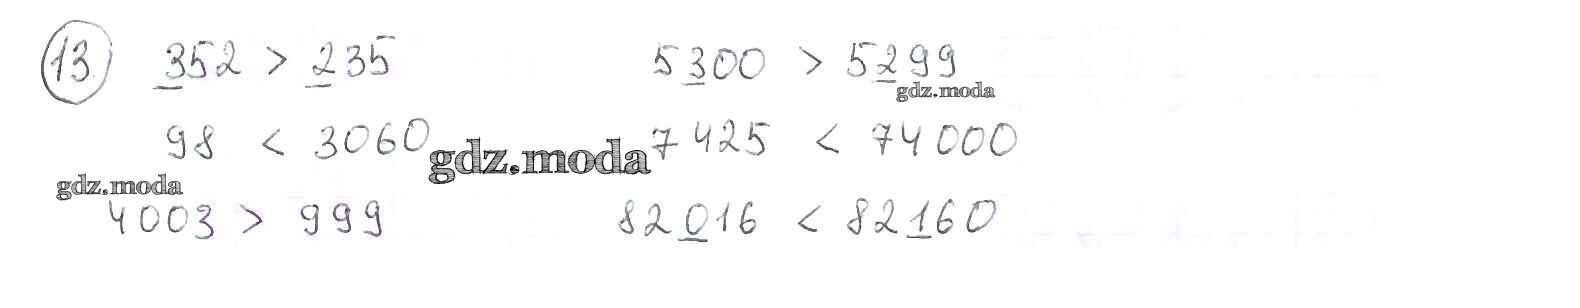 13. 352 > 235 5300 > 5299
gdz.moda
98 < 3060 7425 < 74000
gdz.moda
gdz.moda
4003 > 999 82016 < 82160